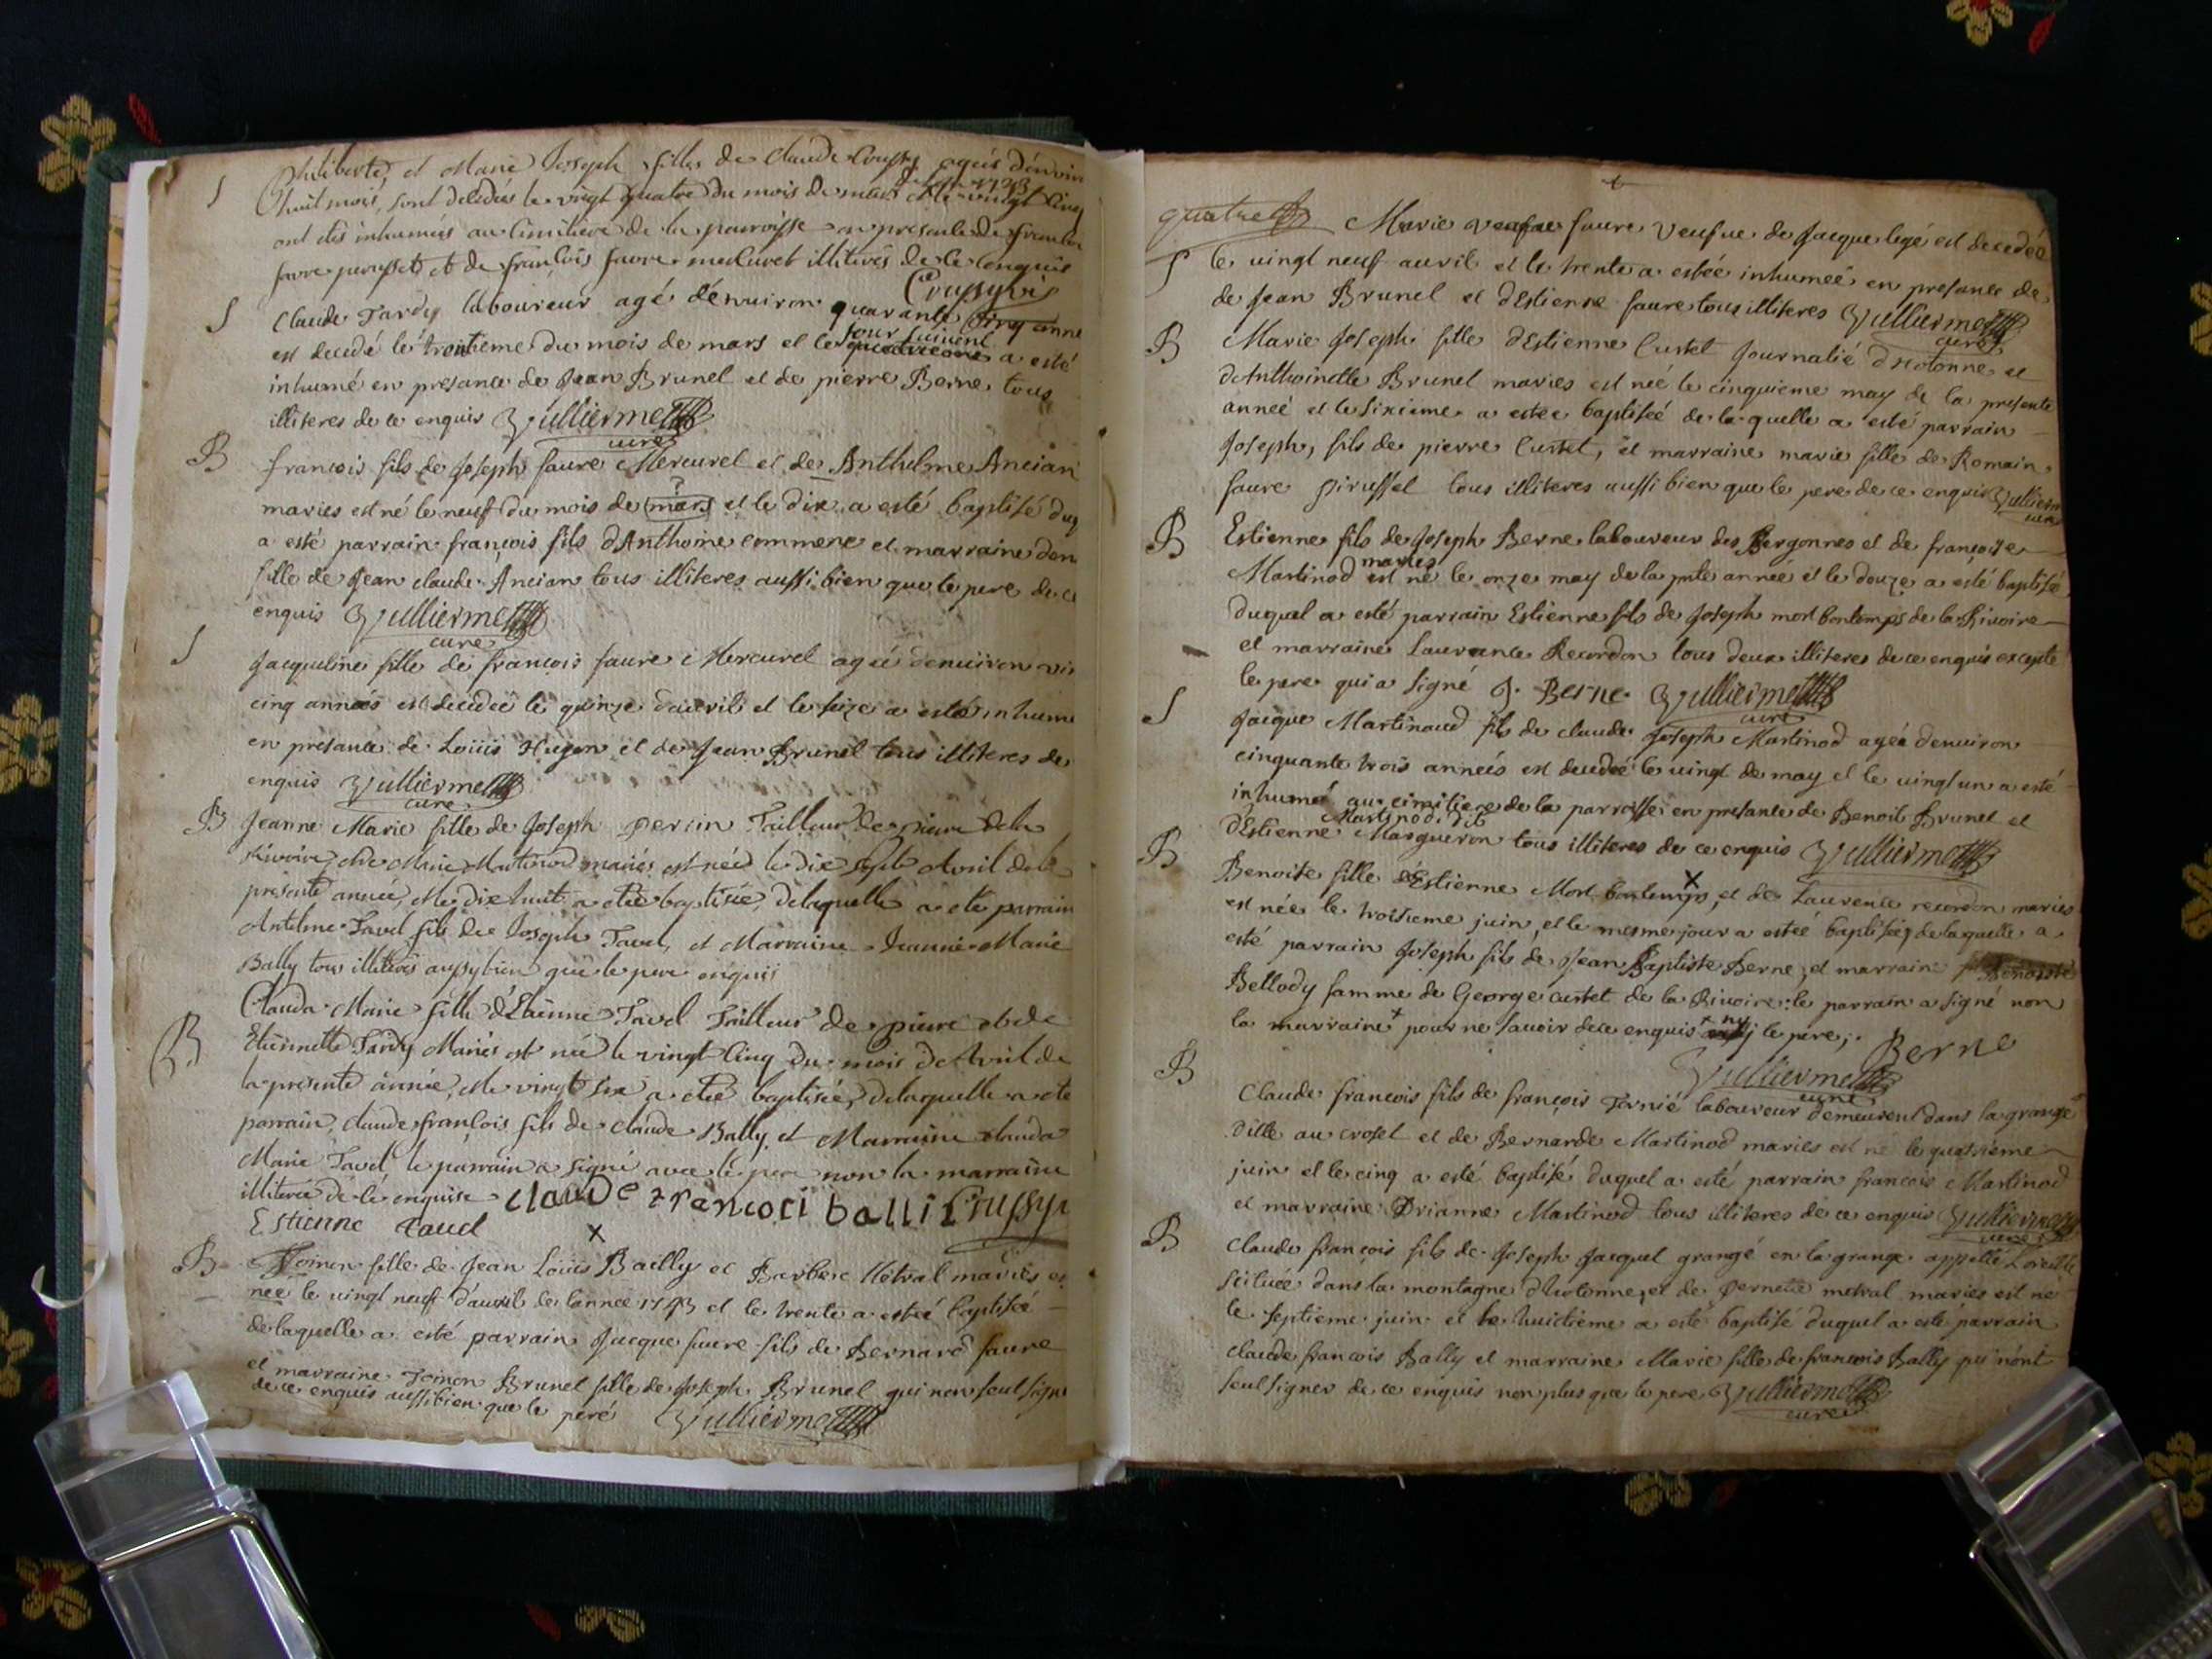 S Philiberte, et Marie Joseph filles de Claude agées d'environ
huit mois, sont decedées le vingt quatre du mois de mars et le vingt cinq
de l'an 1743
ont étés inhumées au cimitiere de la parroisse en presence de francois
favre et de françois favre mercuret illiterés de ce enquis
S Claude Tardy laboureur agé d'enuiron quarante cinq anné
est decedé le trentieme du mois de mars et le quatrieme a esté
jour suiuent
inhumé en presance de Jean Brunel et de pierre Berne tous
illiteres de ce enquis Vulliermet
curé
B francois fils de Joseph faure Mercurel et de Anthelme Ancian
maries est né le neuf du mois de mars et le dix a esté baptisé duq
?
a esté parrain françois fils d'Anthoine commere et marraine
fille de Jean claude Ancian tous illiteres aussi bien que le pere de ce
enquis Vulliermet
curé
S Jacqueline fille de francois faure Mercurel agée denuiron
cinq années est decedée le quinze d'auril et le seize a estée inhumé
en presance de Loüis Hugon et de Jean Brunel tous illiteres de
enquis Vulliermet
curé
B Jeanne Marie fille de Joseph perrin Tailleur de pierre de la
Rivoire, et de Marie Martinod mariés est née le dix sept Avril de la
presente année, et le dix huit a etée baptisée, de laquelle a été parrain
Antelme Tavel fils de Joseph Tavel, et Marraine Jeanne Marie
Bally tous illiterés aussy bien que le pere enquis
B Clauda Marie fille d'Etienne Tavel Tailleur de pierre et de
Etiennette Tardy Mariés est née le vingt cinq du mois de Avril de
la presente année, et le vingt six a etée baptisée, de laquelle a ete
parrain claude françois fils de claude Bally et Marraine clauda
Marie Tavel le parrain a signé avec le pere non la marraine
illiterée de ce enquise claude francoci balli
Estienne Tauel
x
B Toinon fille de Jean Loüis Bailly et Barbere Métral mariés es
née le uingt neuf d'auril de lannée 1743 et le trente a estée baptisée
de laquelle a esté parrain Jacque faure fils de Bernard faure
et marraine Toinon Brunel fille de Joseph Brunel qui non seul signé
de ce enquis aussi bien que le peré Vulliermet
quatre
S Marie faure veufue de Jacque legé est decedée
le uingt neuf auril et le trente a estée inhumeé en presance de
de Jean Brunel et d'Estienne faure tous illiteres Vulliermet
curé
B Marie Joseph fille d'Estienne Curtet Journalié d'hotonne et
d'Anthoinette Brunel maries est née le cinquieme may de la presente
anneé et le sixieme a estee baptiseé de la quelle a esté parrain
Joseph, fils de pierre Curtet, et marraine marie fille de Romain
faure pirussel tous illiteres aussi bien que le pere de ce enquis Vullierm
curé
B Estienne fils de Joseph Berne laboureur des Bergonnes et de françoise
Martinod est né le onze may de la pnte année et le douze a esté baptisé
maries
duquel a esté parrain Estienne fils de Joseph mort bontemps de la Riuoire
et marraine Laurance Recordon tous deux illiteres de ce enquis excepté
le pere qui a signé J. Berne Vulliermet
curé
S Jacque Martinaud fils de claude Joseph Martinod ageé denuiron
cinquante trois anneés est decedeé le uingt de may et le uingt un a esté
inhumé au cimitiere de la parroisse en presance de Benoit Brunel et
Martinod dit
d'Estienne Masqueron tous illiteres de ce enquis Vulliermet
B Benoite fille d'Estienne Mort bontemps, et de Laurence recordon maries
x
est née le troisieme juin, et le mesme jour a estée baptisée de laquelle a
esté parrain Joseph fils de Jean Baptiste Berne, et marraine Benoiste
Bellody famme de George curtet de la Riuoire: le parrain a signé non
la marraine pour ne sauoir de ce enquis ny le pere;
Berne
Vulliermet
curé
B Claude francois fils de françois Tornié laboureur demeurent dans la grange
ditte au croset et de Bernarde Martinod maries est né le quatrieme
juin et le cinq a esté baptisé duquel a esté parrain francois Martinod
et marraine Drianne Martinod tous illiteres de ce enquis Vulliermet
curé
B Claude françois fils de Joseph Jacquet grangé en la grange appellé
scituée dans la montagne d'hotonne, et de pernette metral maries est né
le septieme juin et le huictieme a esté baptisé duquel a esté parrain
claude francois Bally et marraine Marie fille de francois Bally qui n'ont
seul signer de ce enquis non plus que le pere Vulliermet
curé